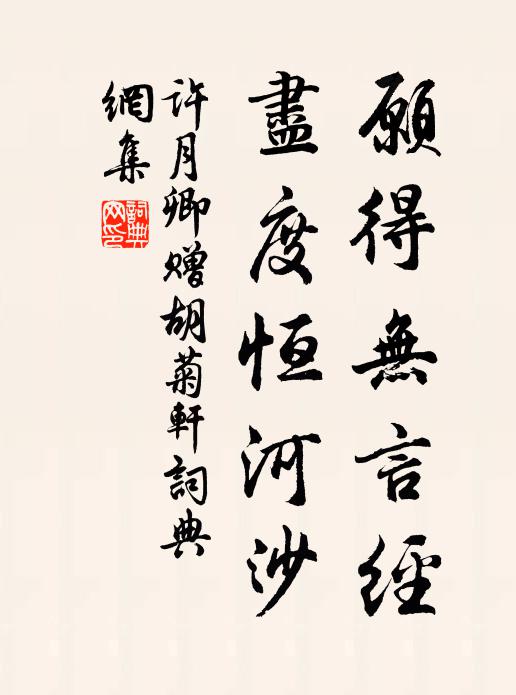 願得無言經
盡度恒河沙
許月卿贈胡菊軒詞典
網集
詞典
网印